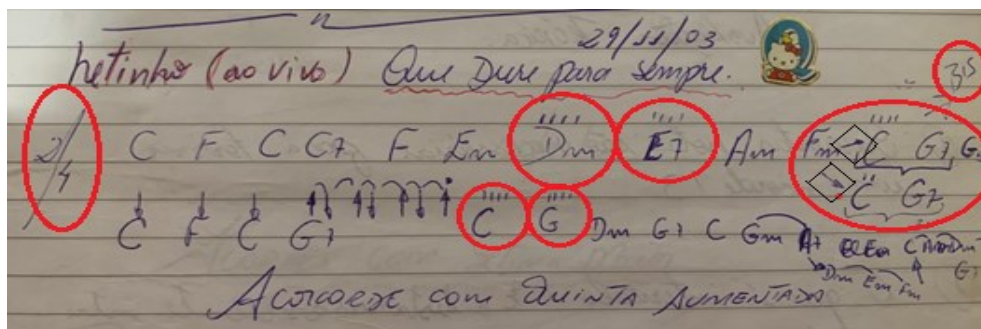 29/11/03
Netinho (ao vivo) Que Dure para Sempre.
Bis
2/4 C F C C7 F Em Dm E7 Am Fm C G7, G
C G7
C F C G7 C G Dm G7 C Gm A7
Dm Em Fm G7
Acorde com Quinta Aumentada